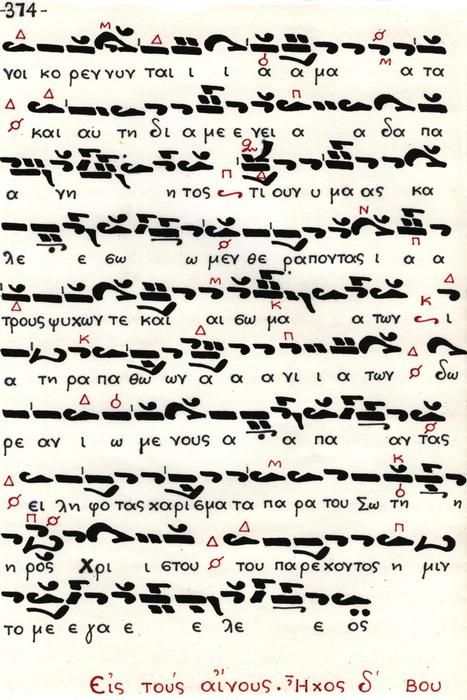 -374-
γοι κο ρεν νυν ται ι ι α α μα α τα
και αὐ τη δι α με ε νει α α δα πα
α νη η τος τι ουν υ μα ας κα
λε ε σω ω μεν θε ραποντας ι α α
τρους ψυχων τε και αι σω μα α των ι
α τη ρα πα θω ων α α α γι ι α των δω
ρε αν ι ω με νους α α πα αν τας
ει λη φο τας χαρι σμα τα πα ρα του Σω τη η
η ρος Χρι ι στου του παρεχοντος η μιν
το με ε γα ε ε λε ε ος
Εἰς τοὺς αἴνους. Ἦχος δ΄ Βου